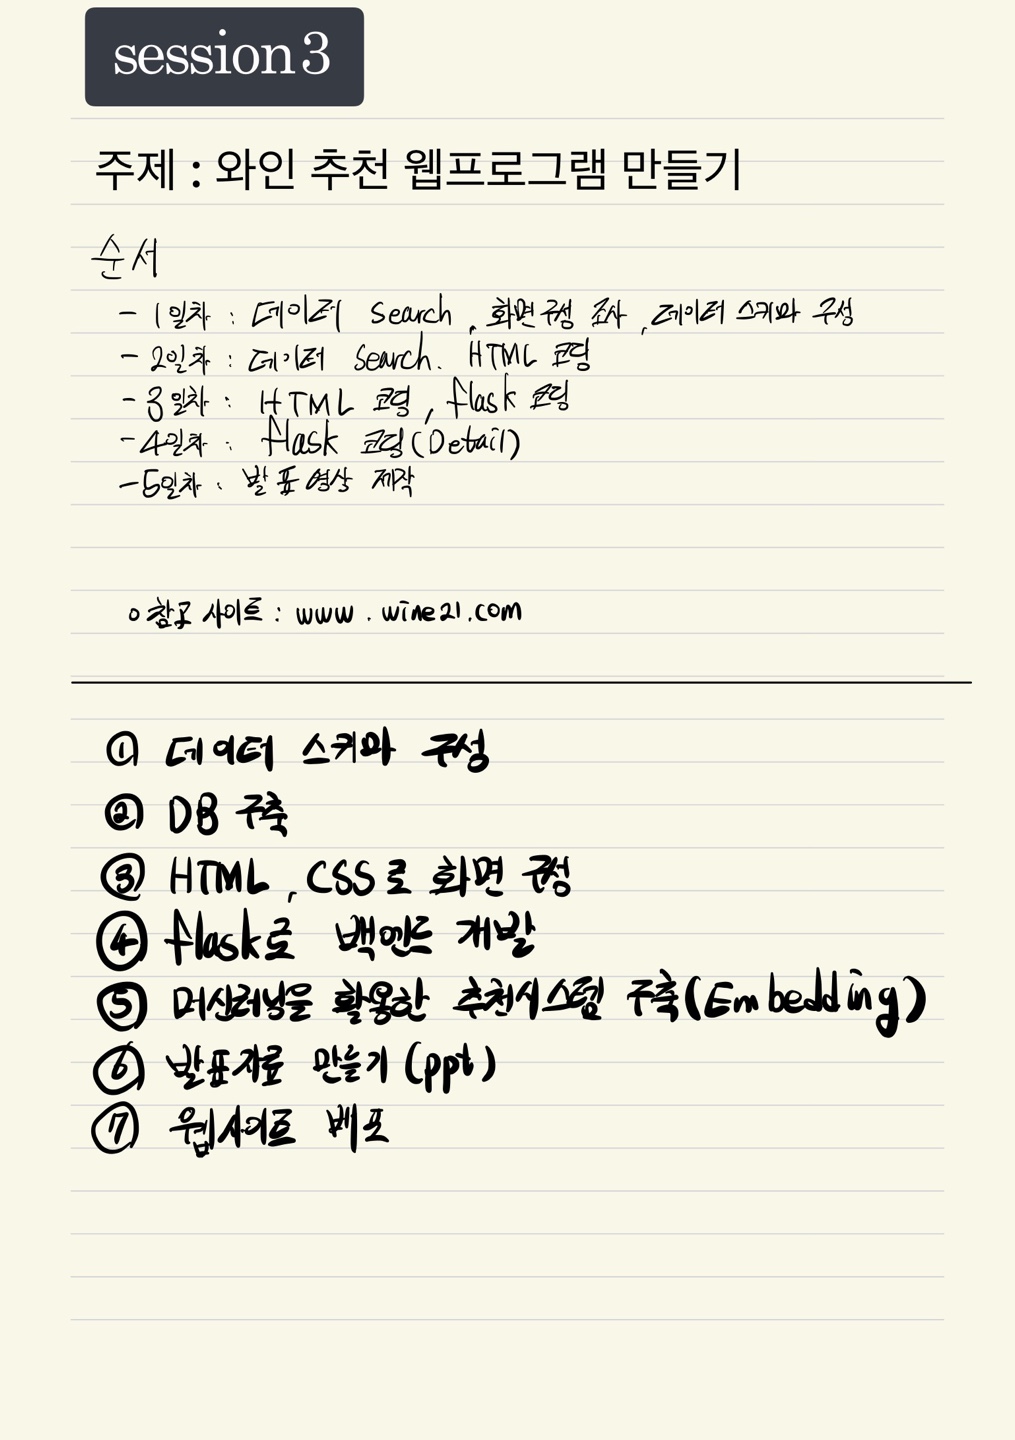 session 3
주제 : 와인 추천 웹프로그램 만들기
순서
- 1일차 : 데이터 Search, 화면구성 조사, 데이터 스키마 구성
- 2일차 : 데이터 Search. HTML 코딩
- 3일차 : HTML 코딩, flask 코딩
- 4일차 : flask 코딩(Detail)
- 5일차 : 발표영상 제작
○ 참고 사이트 : www.wine21.com
① 데이터 스키마 구성
② DB 구축
③ HTML, CSS로 화면 구성
④ flask로 백엔드 개발
⑤ 머신러닝을 활용한 추천시스템 구축(Embedding)
⑥ 발표자료 만들기 (ppt)
⑦ 웹사이트 베포